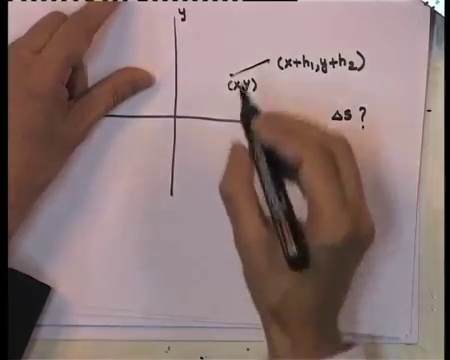 y
(x+h₁, y+h₂)
(x,y)
Δs ?